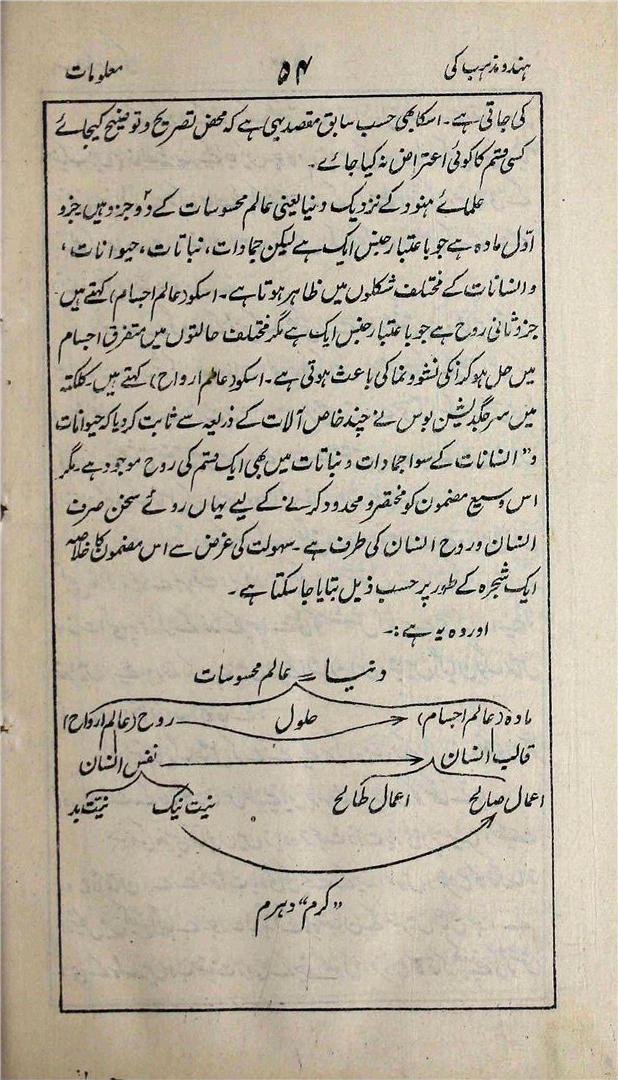 ہندو مذہب کی ۵۴ معلومات
کی جاتی ہے۔ اسکا بھی حسب سابق مقصد یہی ہے کہ محض تصریح و توضیح کیجائے
کسی قسم کا کوئی اعتراض نہ کیا جائے۔
علمائے ہنود کے نزدیک دنیا یعنی عالم محسوسات کے دو جزو ہیں جزو
اوّل مادہ ہے جو با عتبار جنس ایک ہے لیکن جمادات، نباتات، حیوانات،
و انسانات کے مختلف شکلوں میں ظاہر ہوتا ہے۔ اسکو (عالم اجسام) کہتے ہیں۔
جزو ثانی روح ہے جو با عتبار جنس ایک ہے مگر مختلف حالتوں میں متفرق اجسام
میں حل ہو کر انکی نشوونما کی باعث ہوتی ہے۔ اسکو (عالم ارواح) کہتے ہیں۔ کلکتہ
میں سر جگدیش بوس نے چند خاص آلات کے ذریعہ سے ثابت کر دیا کہ حیوانات
و انسانات کے سوا جمادات و نباتات میں بھی ایک قسم کی روح موجود ہے۔ مگر
اس وسیع مضمون کو مختصر و محدود کرنے کے لیے یہاں روئے سخن صرف
انسان و روح انسان کی طرف ہے۔ سہولت کی غرض سے اس مضمون کا خلاصہ
ایک شجرہ کے طور پر حسب ذیل بتایا جا سکتا ہے۔
اور وہ یہ ہے:۔
دنیا = عالم محسوسات
مادہ (عالم اجسام) حلول روح (عالم ارواح)
قالب انسان نفس انسان
اعمال صالح اعمال طالح نیت نیک نیت بد
"کرم" دہرم